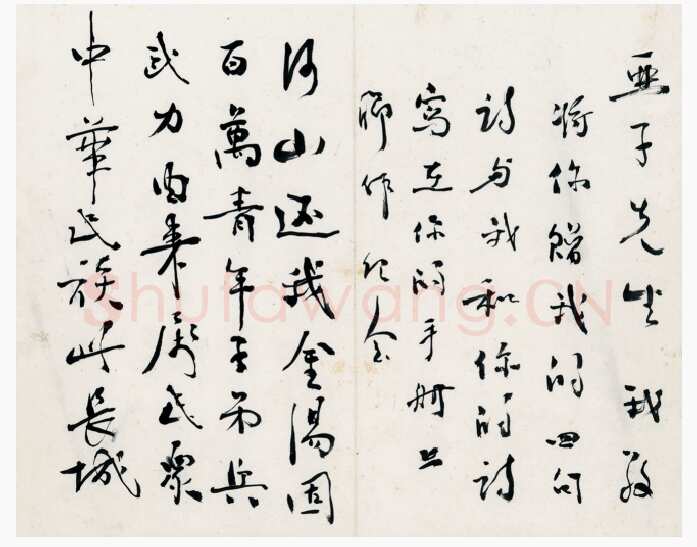 亞子先生我敬
将你贈我的四句
詩与我和你的詩
寫在你的手册上
聊作纪念
河山還我金湯固
百萬青年子弟兵
武力由来屬民眾
中華民族此長城
Shufawang.CN